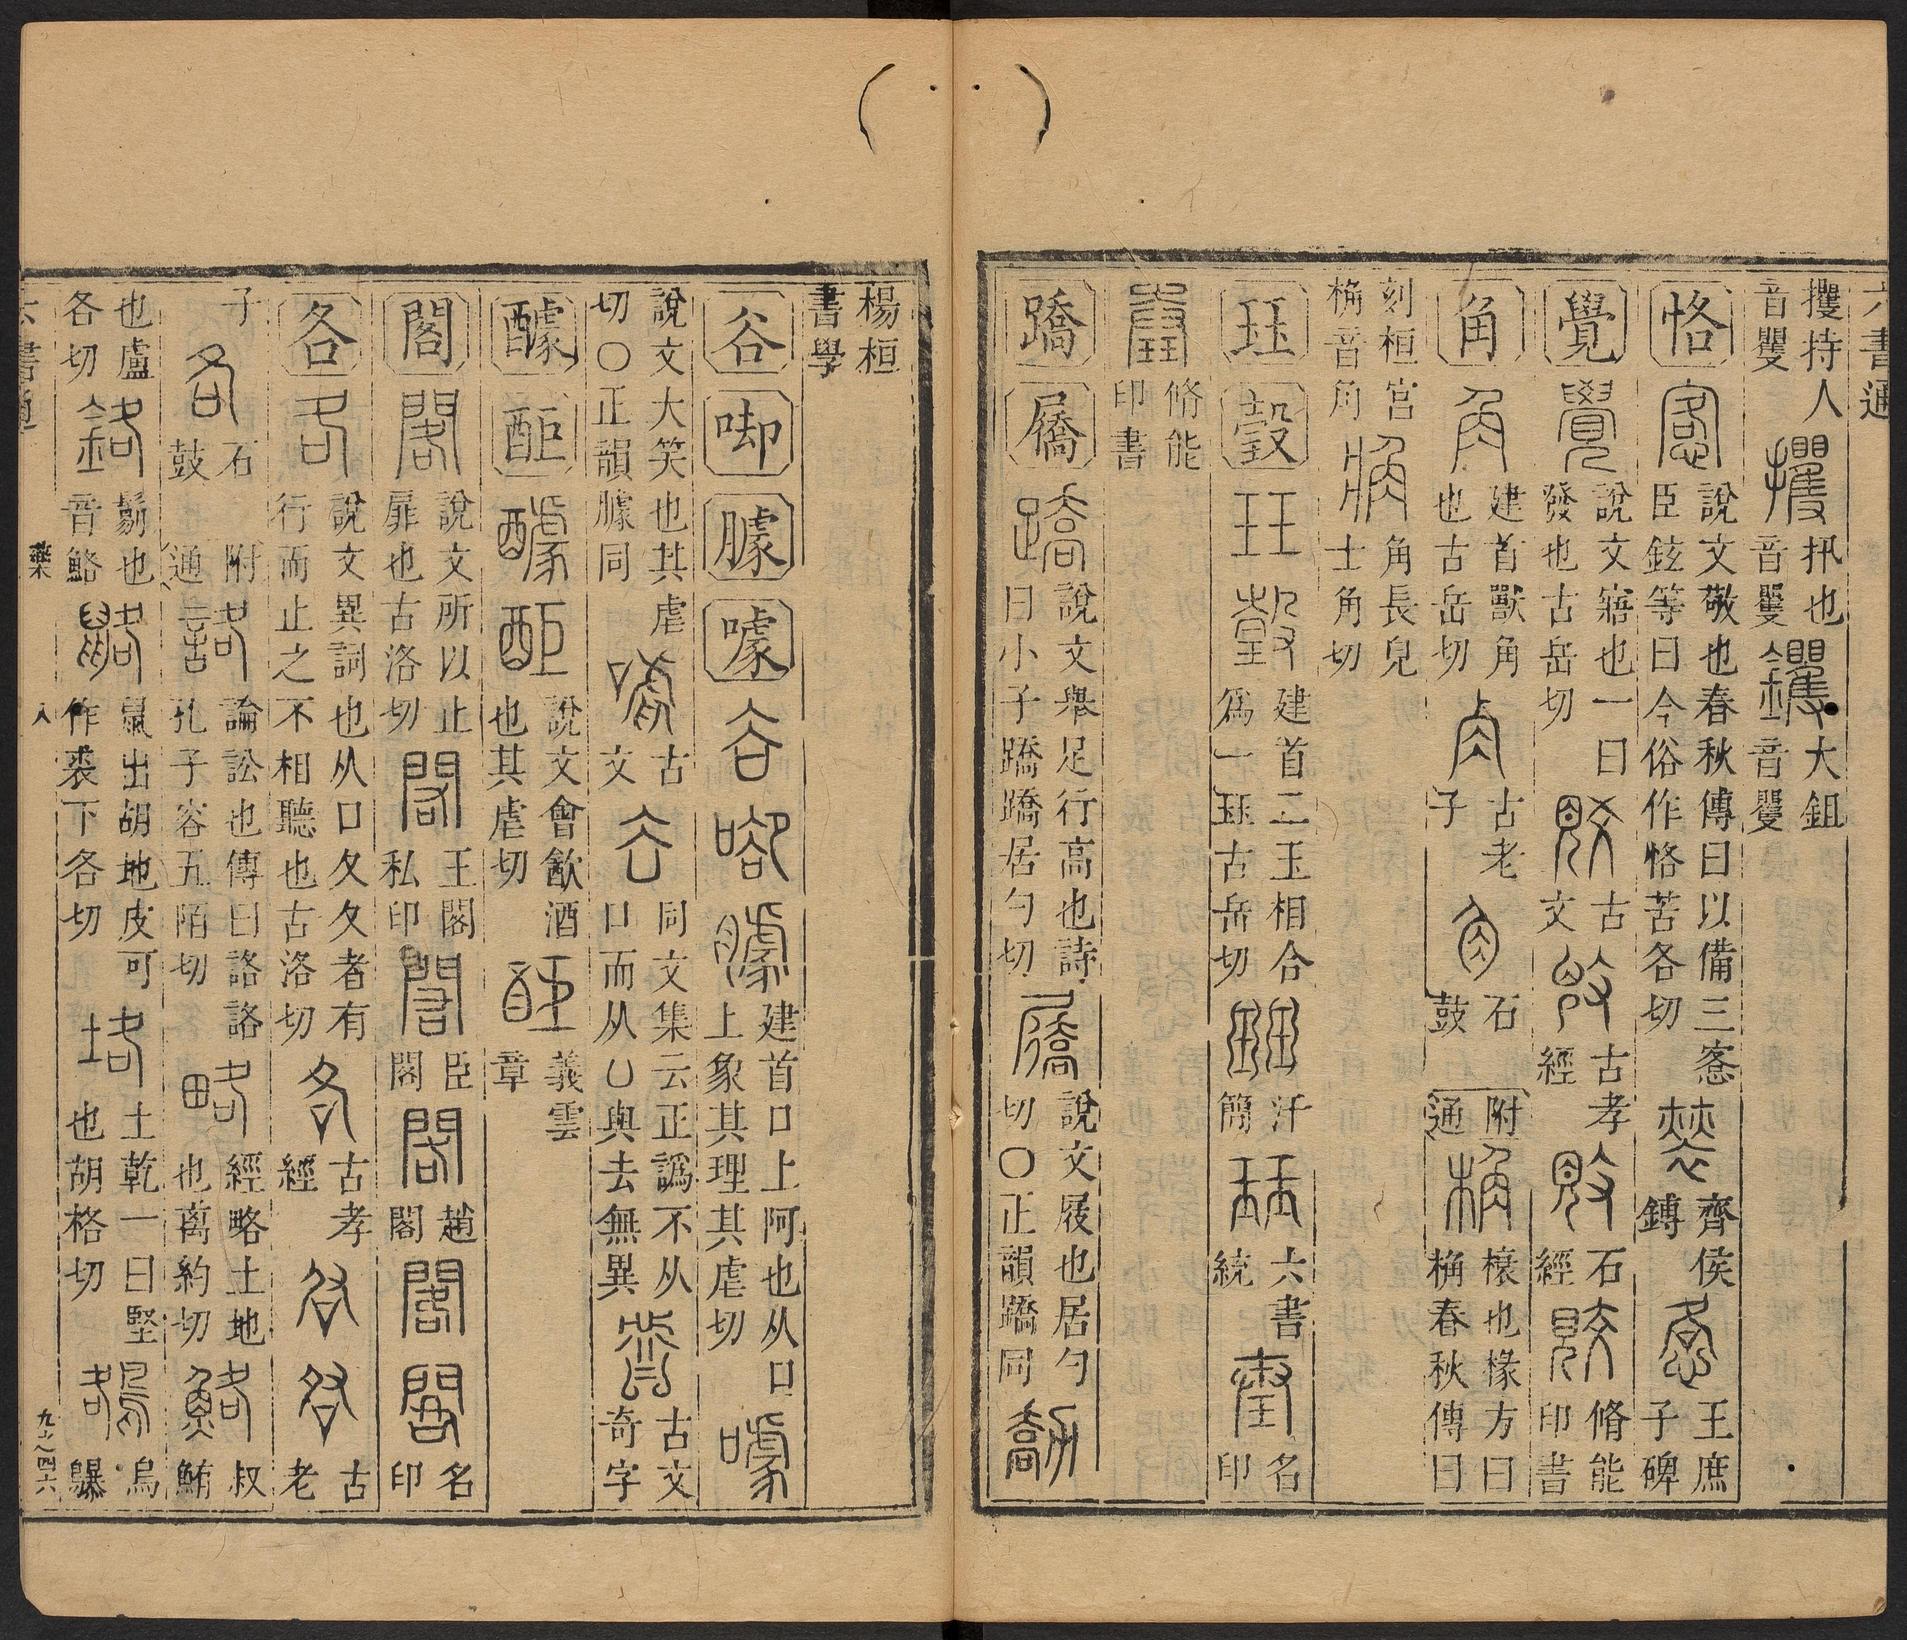 六書通
攫持人
音矍
扟也
音矍
大鉏
音矍
恪
說文敬也春秋傳曰以備三愙
臣鉉等曰今俗作恪苦各切
齊侯
鎛
王庶
子碑
覺
說文寤也一曰
發也古岳切
古
文
古孝
經
石
經
脩能
印書
角
建首獸角
也古岳切
古老
子
石
鼓
附
通
榱也椽方曰
桷春秋傳曰
刻桓宮
桷音角
角長皃
士角切
珏
瑴
建首二玉相合
為一珏古岳切
汗
簡
六書
統
名
印
脩能
印書
蹻
屩
說文舉足行高也詩
曰小子蹻蹻居勺切
說文屐也居勺
切〇正韻蹻同
楊桓
書學
谷
㖸
臄
噱
建首口上阿也从口
上象其理其虐切
說文大笑也其虐
切〇正韻臄同
古
文
同文集云正譌不从
口而从凵與去無異
古文
奇字
醵
䣰
說文會飲酒
也其虐切
義雲
章
閣
說文所以止
扉也古洛切
王閣
私印
臣
閣
趙
閣
名
印
各
說文異詞也从口夂夂者有
行而止之不相聽也古洛切
古孝
經
古
老
子
石
鼓
附
通
論訟也傳曰詻詻
孔子容五陌切
經略土地
也离約切
叔
鮪
也盧
各切
鬄也
音鉻
鼠出胡地皮可
作裘下各切
土乾一曰堅
也胡格切
烏
鸔
六書通
藥
八
九之四六